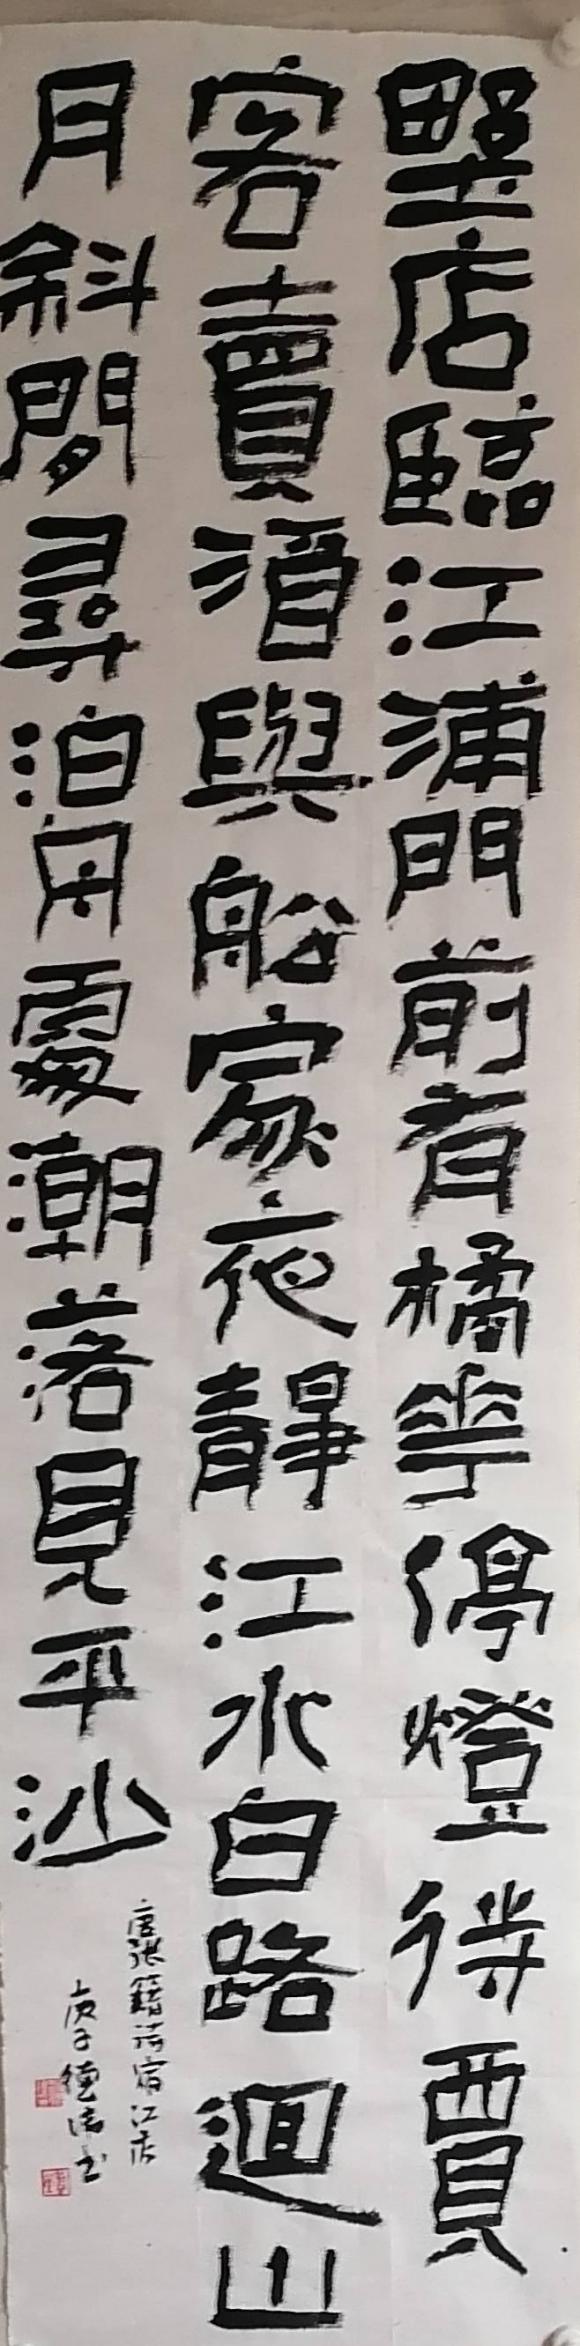 野店臨江浦門前有橘華停燈待賈
客賣酒與船家夜靜江水白路迴山
月斜閒尋泊舟處潮落見平沙
唐張籍詩宿江店
庚子德書